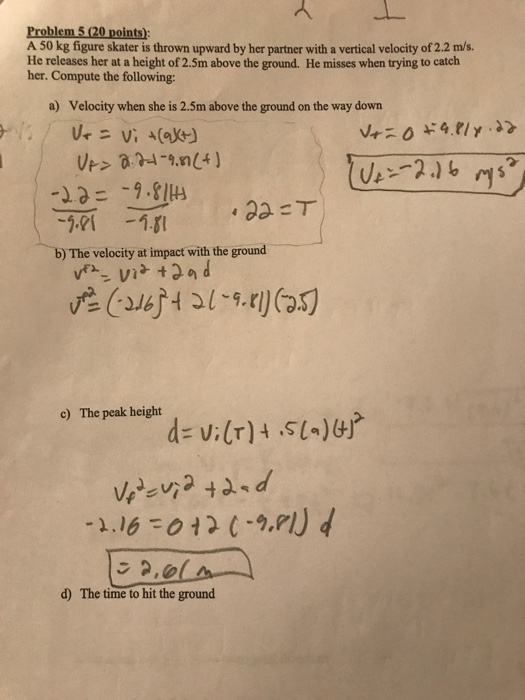 Problem 5 (20 points):
A 50 kg figure skater is thrown upward by her partner with a vertical velocity of 2.2 m/s.
He releases her at a height of 2.5m above the ground. He misses when trying to catch
her. Compute the following:
a) Velocity when she is 2.5m above the ground on the way down
Vf = Vi +(a)(t)
Vf = 2.2+-9.81(t)
-2.2 = -9.81(t)
-9.81 -9.81
.22 = T
Vf = 0 + -9.81 x .22
Vf = -2.16 m/s²
b) The velocity at impact with the ground
vf² = vi² + 2ad
vf² = (-2.16)² + 2(-9.81)(-2.5)
c) The peak height
d = Vi(T) + .5(a)(t)²
Vf² = Vi² + 2ad
-2.16 = 0 + 2(-9.81) d
= 2.61 m
d) The time to hit the ground